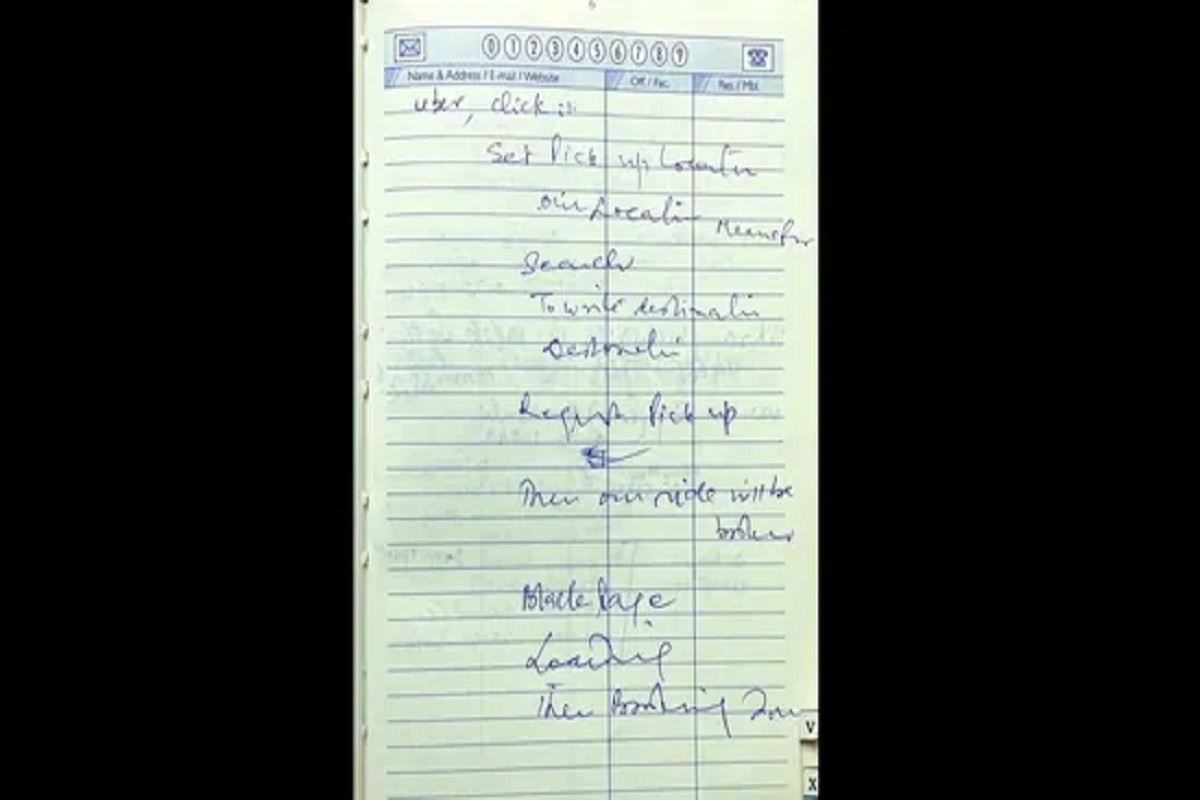 0 1 2 3 4 5 6 7 8 9
Name & Address / E.mail / Website Off / Fac. Res / Mbl.
uber, click
Set Pick up Location
our Location
Search
To write destination
Destination
Request Pick up
Then our ride will be
Black Page
Loading
Then Booking
V
X